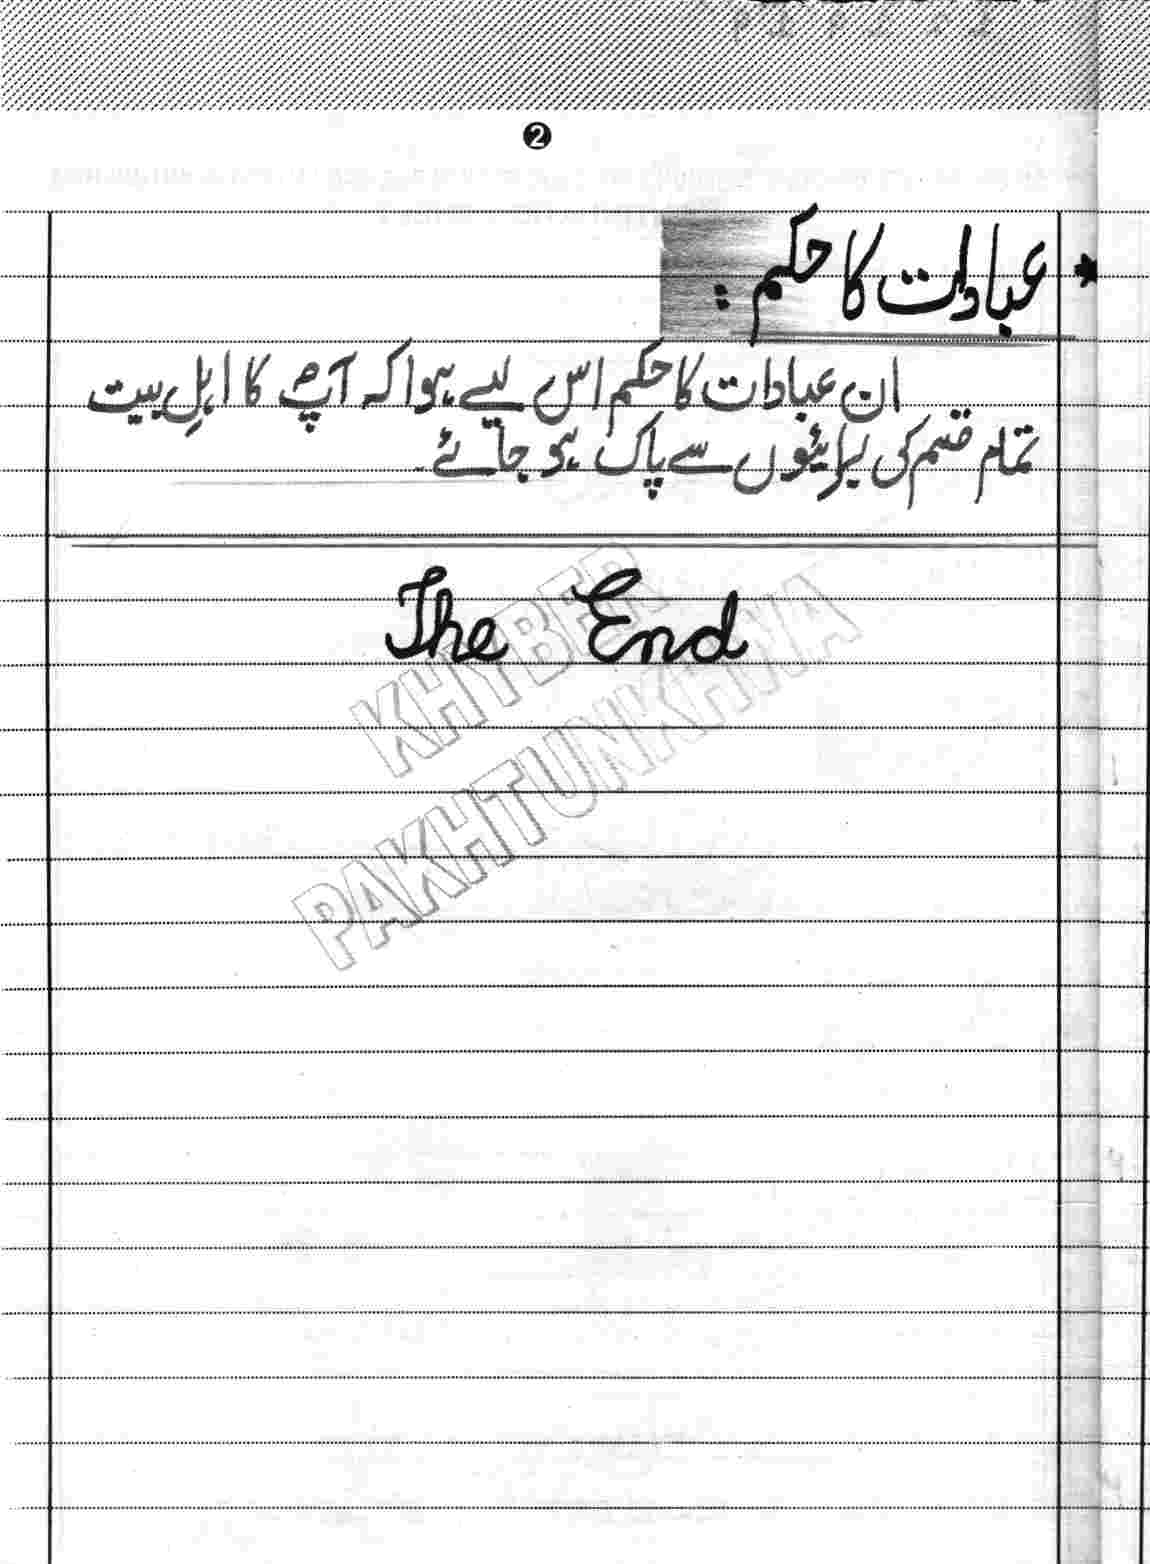 2
* عبادات کا حکم :
ان عبادات کا حکم اس لیے ہوا کہ آپؐ کا اہلِ بیت
تمام قسم کی برائیوں سے پاک ہو جائے۔
The End
KHYBER
PAKHTUNKHWA